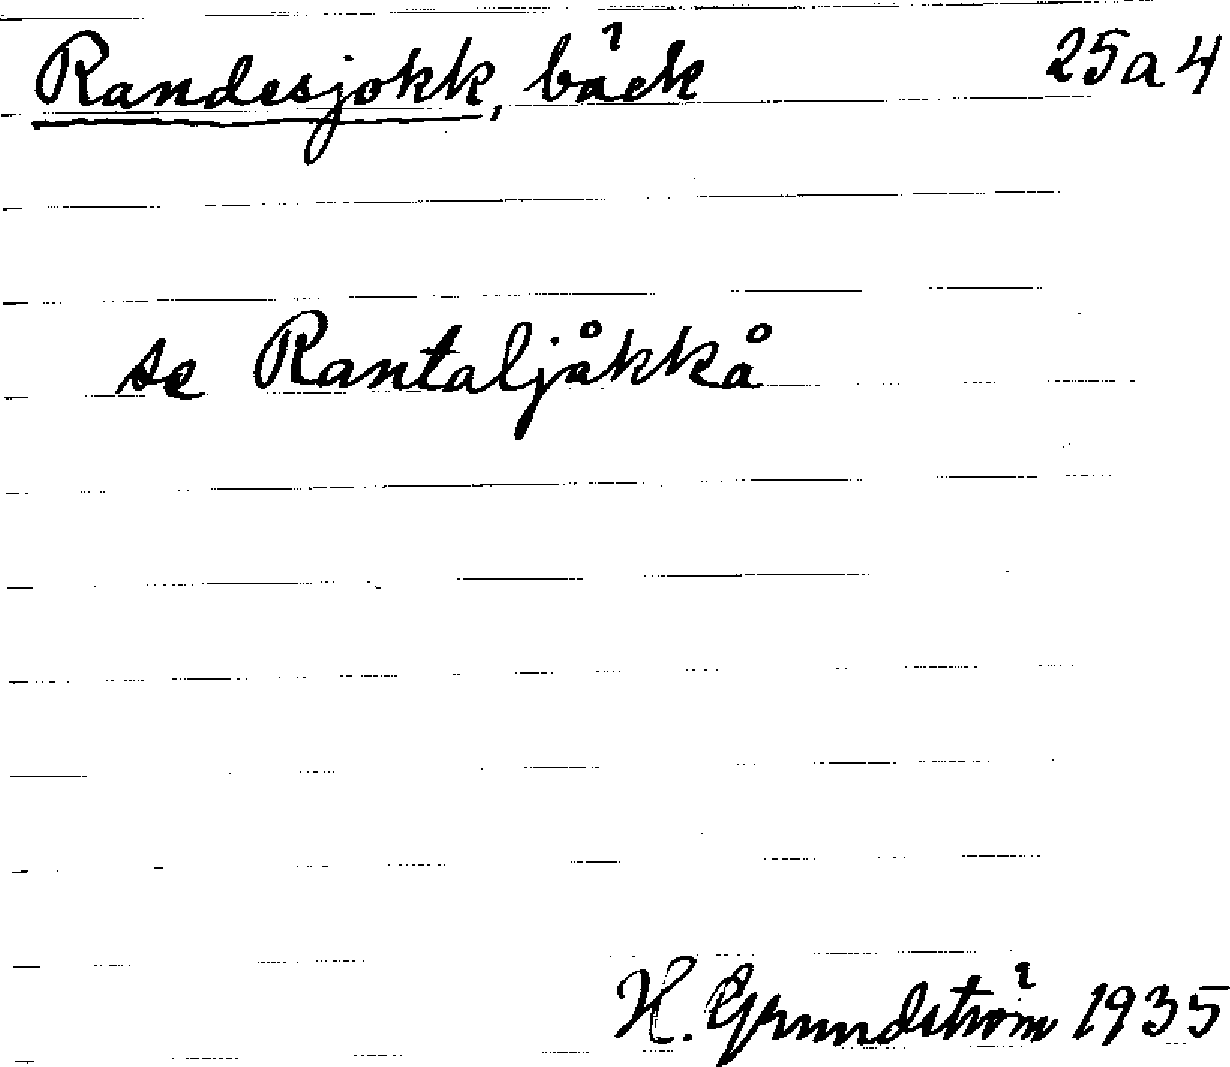 Randesjokk, bäck 25a4
se Rantaljåkkå
H. Grundström 1935